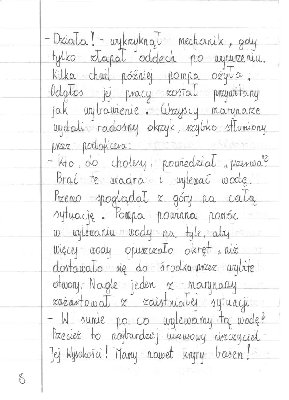 - Działa! - wykrzyknął mechanik, gdy
tylko złapał oddech po wynurzeniu.
Kilka chwil później pompa ożyła.
Odgłos jej pracy został przywitany
jak wybawienie. Wszyscy marynarze
wydali radosny okrzyk, szybko stłumiony
przez podoficera:
- Kto, do cholery, powiedział „przerwa"?
Brać te wiadra i wylewać wodę.
Premo spoglądał z góry na całą
sytuację. Pompa powinna pomóc
w wylewaniu wody na tyle, aby
więcej wody opuszczało okręt, niż
dostawało się do środka przez wybite
otwory. Nagle jeden z marynarzy
zażartował z zaistniałej sytuacji
- W sumie po co wylewamy tą wodę?
Przecież to najbardziej luksusowy krążownik
Jej Wysokości! Mamy nawet kryty basen!
8